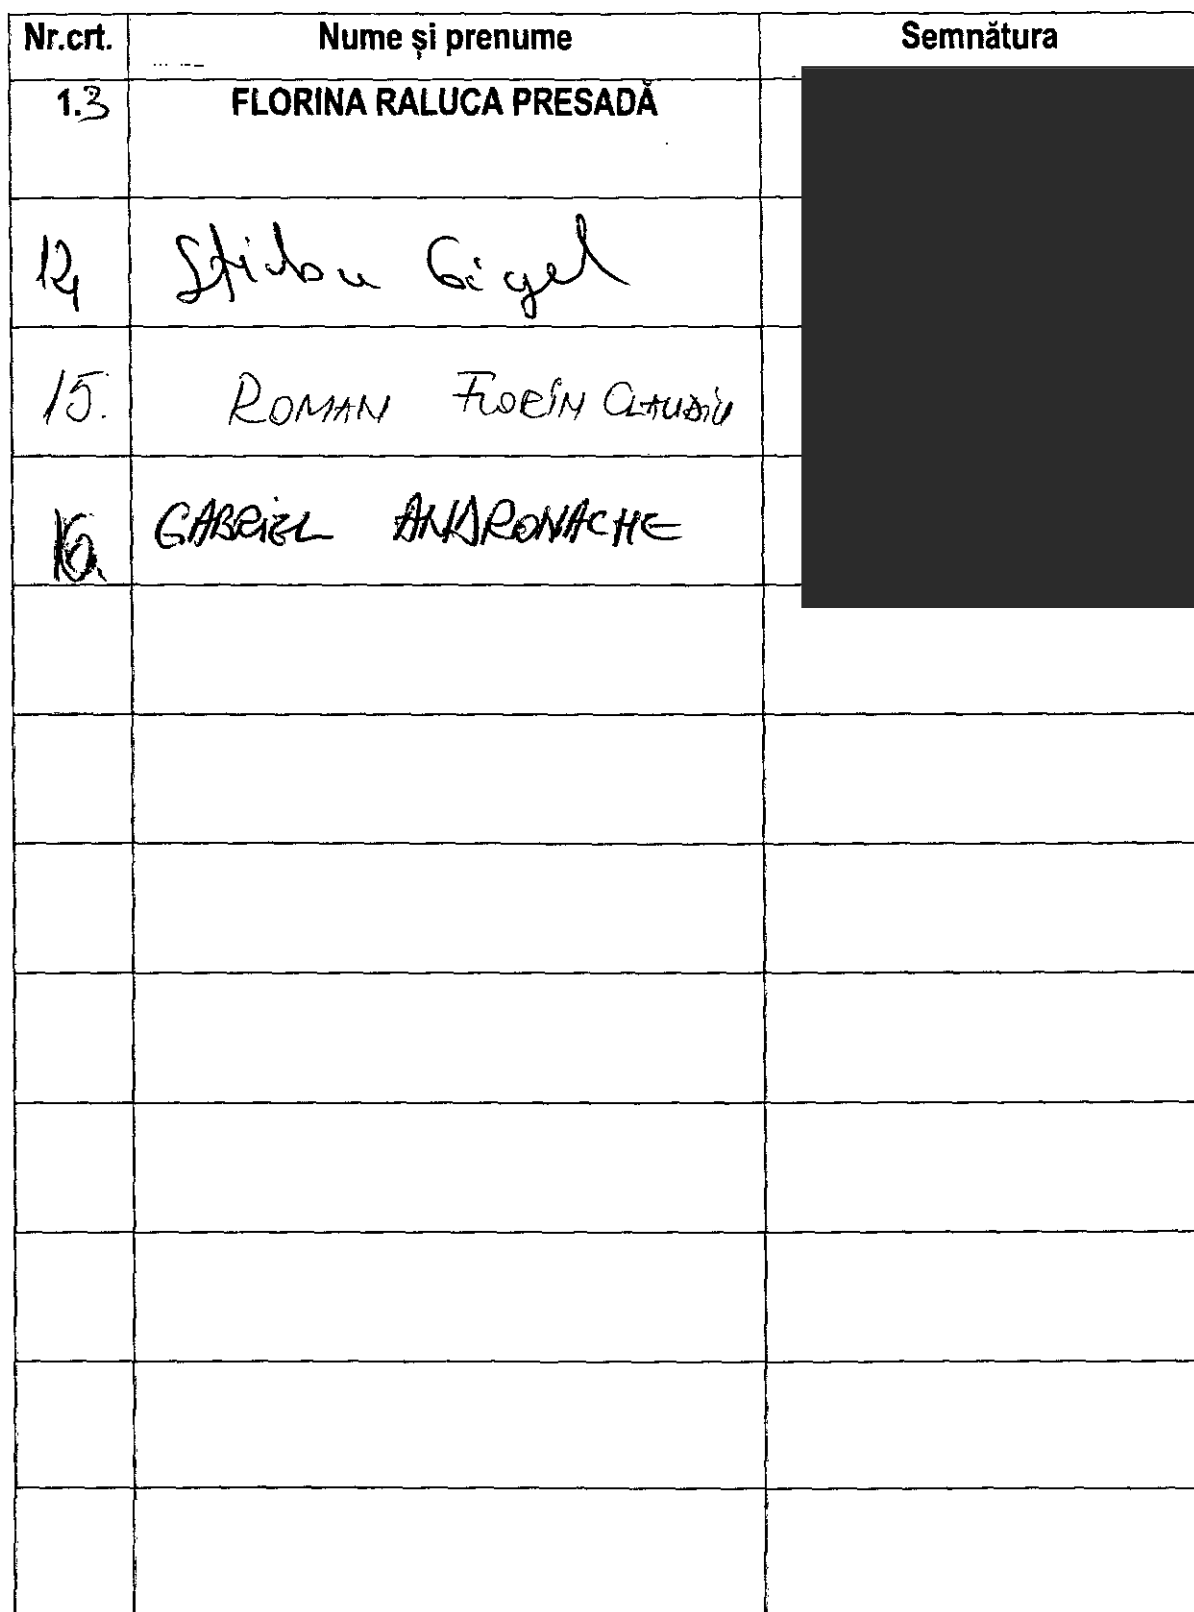 Nr.crt. Nume și prenume Semnătura
1.3 FLORINA RALUCA PRESADĂ
14 Știrbu Gigel
15. ROMAN FLORIN CLAUDIU
16. GABRIEL ANDRONACHE